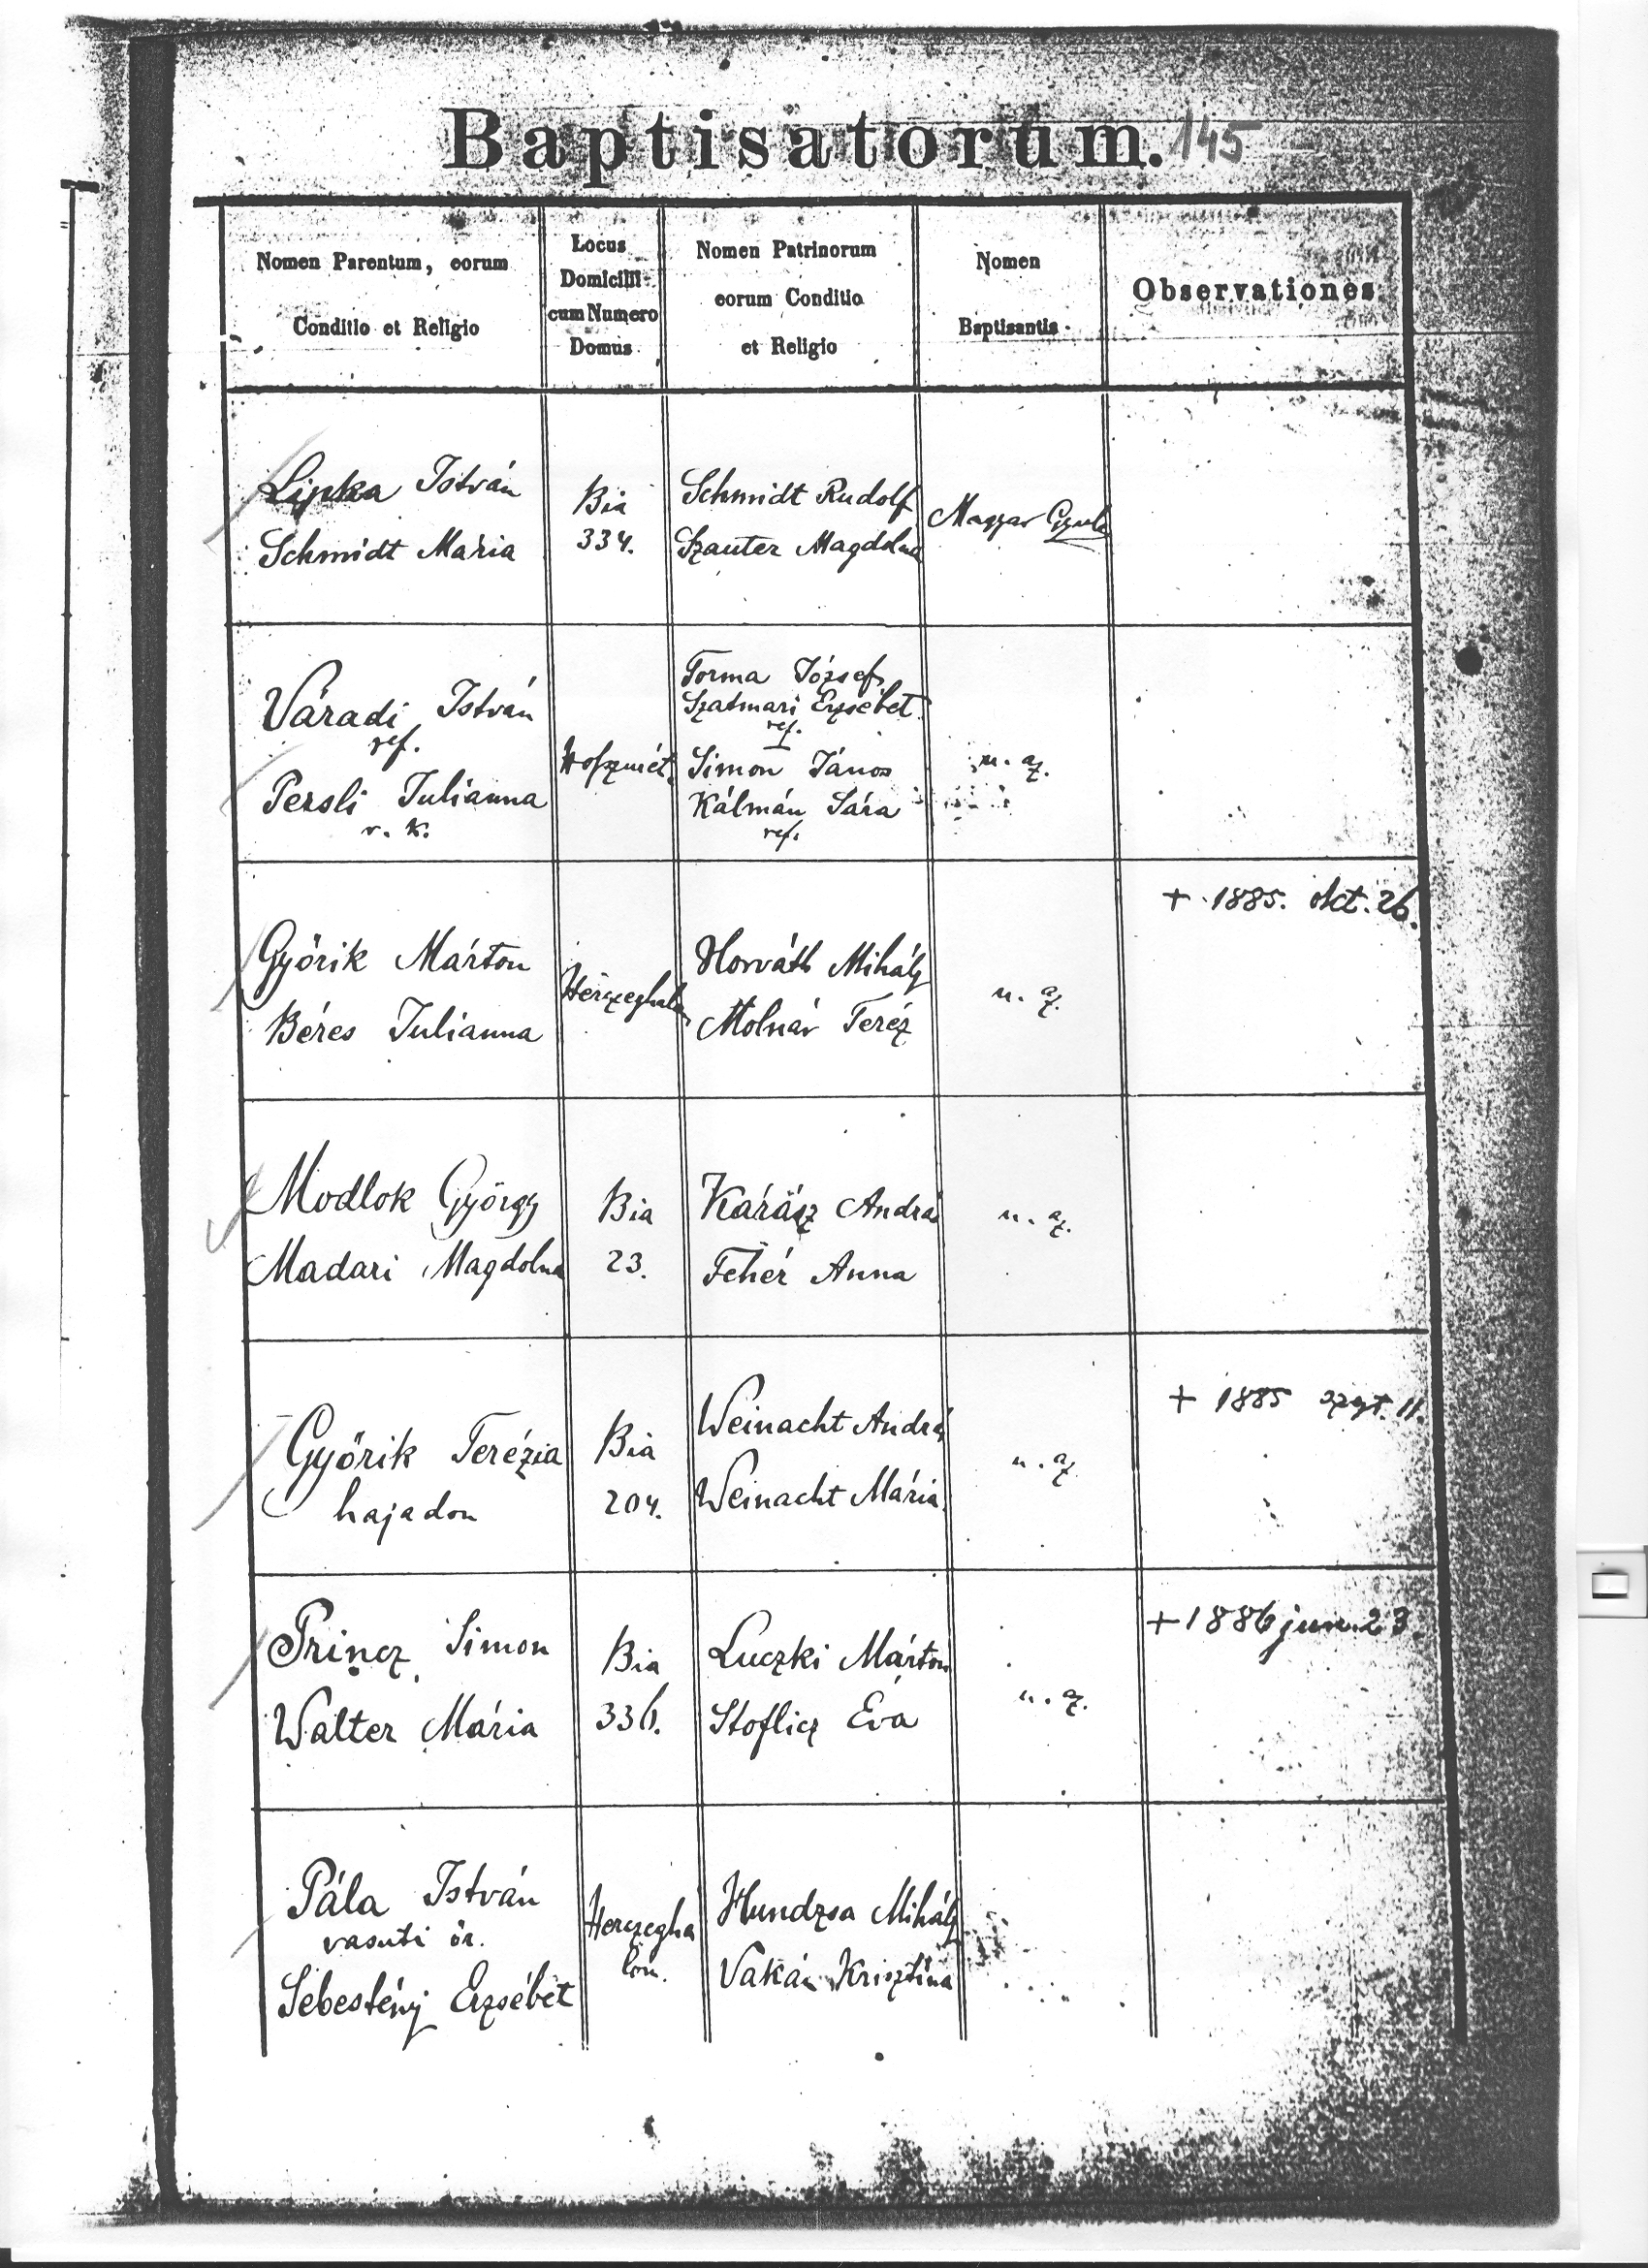 Baptisatorum. 145
Nomen Parentum, eorum
Conditio et Religio
Locus
Domicilii
cum Numero
Domus
Nomen Patrinorum
eorum Conditio
et Religio
Nomen
Baptisantis
Observationes
Lipka István
Schmidt Mária
Bia
334.
Schmidt Rudolf
Szauter Magdolna
Magyar Gyula
Váradi István
ref.
Persli Julianna
r. k.
Torma József
Szatmari Erzsébet
ref.
Simon János
Kálmán Sára
ref.
u. az.
Győrik Márton
Béres Julianna
Herczeghalom
Horváth Mihály
Molnár Teréz
u. az.
+ 1885. okt. 26.
Modlok György
Madari Magdolna
Bia
23.
Kárász András
Fehér Anna
u. az.
Győrik Terézia
hajadon
Bia
204.
Weinacht András
Weinacht Mária
u. az
+ 1885 szept. 11.
Princz Simon
Walter Mária
Bia
336.
Luczki Márton
Stoflicz Éva
u. az.
+ 1886 jun. 23.
Pála István
vasuti őr.
Sebestény Erzsébet
Herczegha
lom.
Hundzsa Mihály
Vakán Krisztina